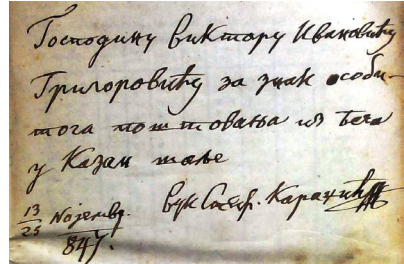 Господину Виктору Ивановићу
Григоровићу за знак особи-
тога поштовања из Беча
у Казан шаље
13/25 Nojемвр. Вук Стеф. Караџић
847.